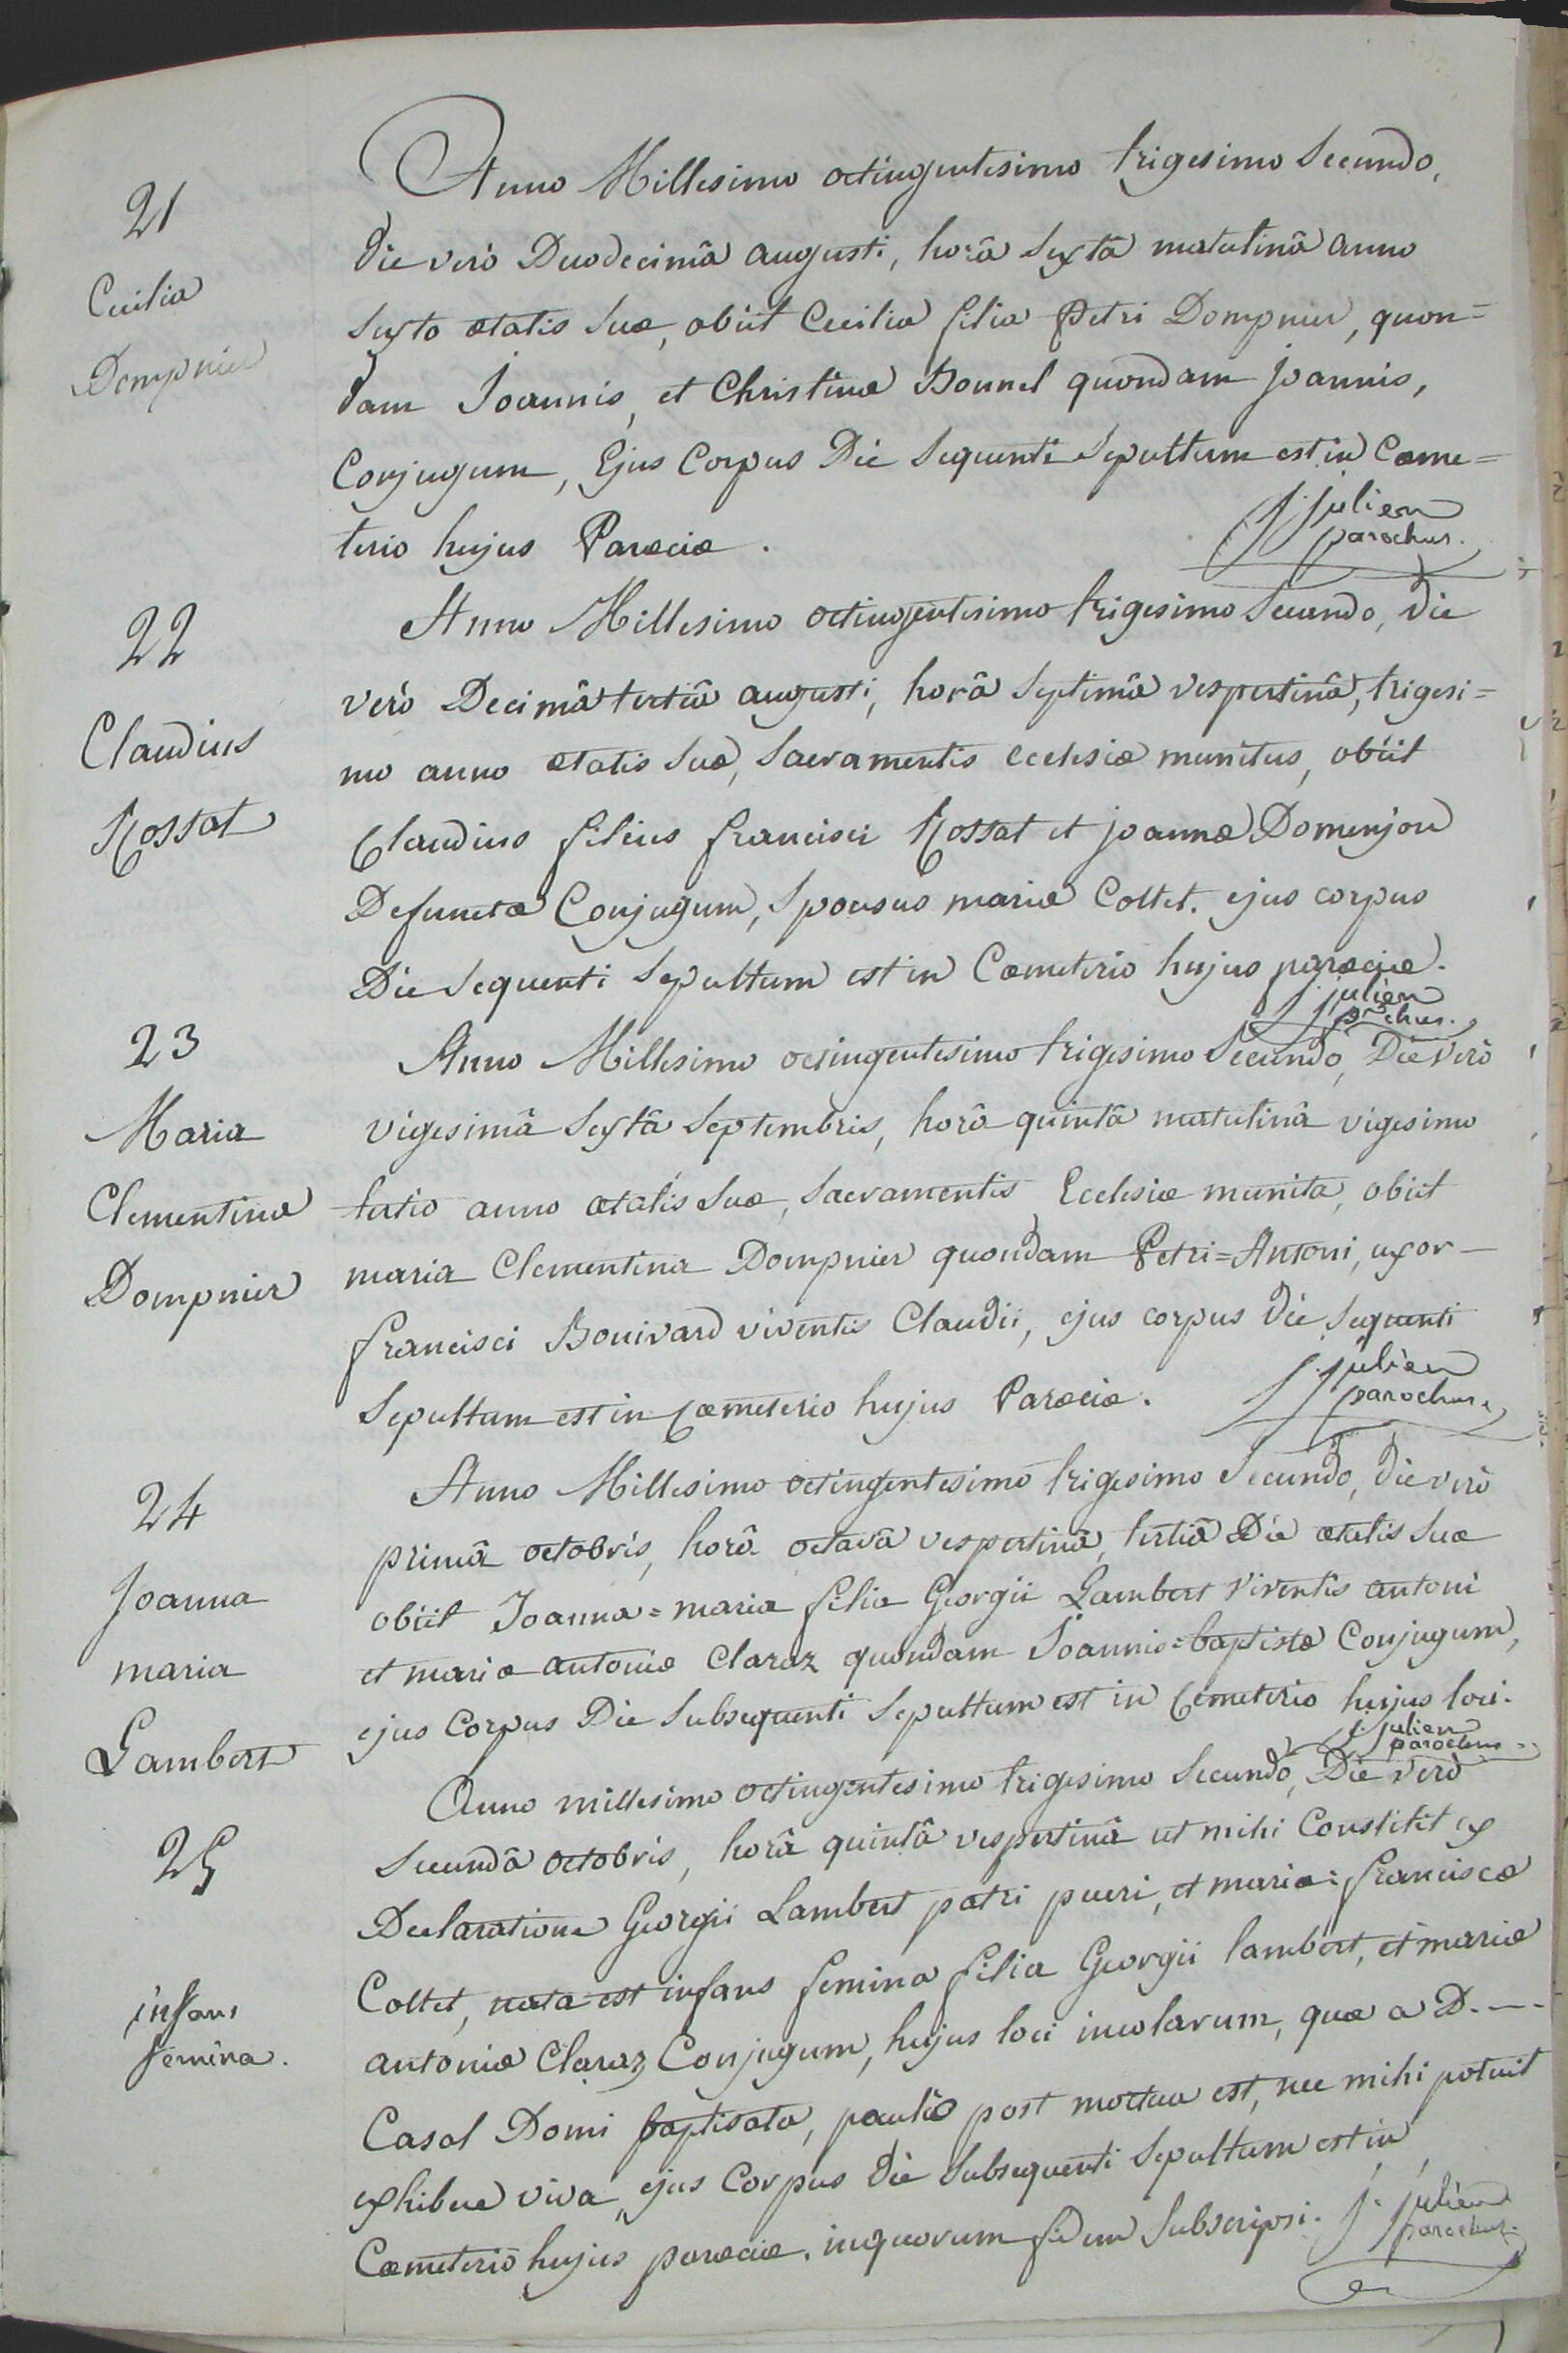 21
Cecilia
Dompnier
Anno Millesimo octingentesimo trigesimo Secundo,
Die verò Duodecimâ augusti, horâ Sextâ matutinâ anno
Sexto ætatis Suæ, obiit Cecilia filia Petri Dompnier, quon=
dam Joannis, et Christinæ Bonnel quondam joannis,
Conjugum, Ejus Corpus Die Sequenti Sepultum est in Cœme=
terio hujus Parœciæ.
J. julien
parochus.
22
Claudius
Rossat
Anno Millesimo octingentesimo trigesimo Secundo, die
verò Decimâ tertiâ augusti, horâ Septimâ vespertinâ, trigesi=
mo anno ætatis Suæ, Sacramentis ecclesiæ munitus, obiit
Claudius filius francisci Rossat et joannæ Domenjon
Defunctæ Conjugum, Sponsus mariæ Collet. ejus corpus
Die Sequenti Sepultum est in Cœmeterio hujus parœciæ.
J. julien
pchus.
23
Maria
Clementina
Dompnier
Anno Millesimo octingentesimo trigesimo Secundo, Die verò
vigesimâ Sextâ Septembris, horâ quintâ matutinâ vigesimo
tertio anno ætatis Suæ, Sacramentis Ecclesiæ munita, obiit
maria Clementina Dompnier quondam Petri=Antoni, uxor
francisci Bouivard viventis Claudii, ejus corpus die Sequenti
Sepultum est in Cœmeterio hujus Parœciæ.
J. julien
parochus.
24
Joanna
maria
Lambert
Anno Millesimo octingentesimo trigesimo Secundo, die verò
primâ octobris, horâ octavâ vespertinâ, tertiâ Die ætatis Suæ
obiit Joanna=maria filia Georgii Lambert viventis antoni
et mariæ antoniæ Claraz quondam Joannis=baptistæ Conjugum,
ejus Corpus Die Subsequenti Sepultum est in Cemeterio hujus loci.
J. julien
parochus
25
infans
femina.
Anno millesimo octingentesimo trigesimo Secundo, Die verò
Secundâ octobris, horâ quintâ vespertinâ ut mihi Constitit ex
Declaratione Georgii Lambert patri pueri, et mariæ=franciscæ
Collet, nata est infans femina filia Georgii lambert, et mariæ
antoniæ Claraz Conjugum, hujus loci incolarum, quæ a D.---
Casal Domi baptisata, paulò post mortua est, nec mihi potuit
exhibere viva, ejus Corpus die Subsequenti Sepultum est in
Cœmeterio hujus parœciæ. in quorum fidem Subscripsi.
J. julien
parochus.